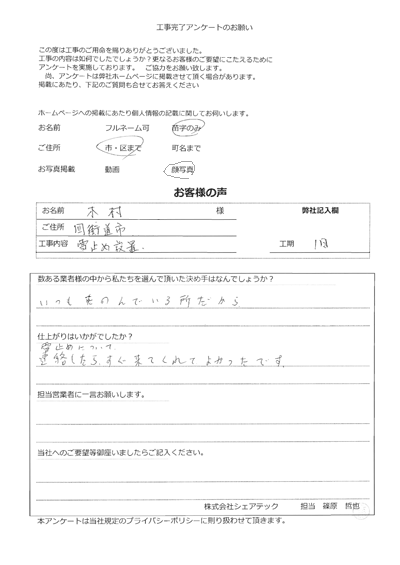 工事完了アンケートのお願い
この度は工事のご用命を賜りありがとうございました。
工事の内容は如何でしたでしょうか?更なるお客様のご要望にこたえるために
アンケートを実施しております。 ご協力をお願い致します。
尚、アンケートは弊社ホームページに掲載させて頂く場合があります。
掲載にあたり、下記のご質問も合せてお答えください
ホームページへの掲載にあたり個人情報の記載に関してお伺いします。
お名前 フルネーム可 苗字のみ
ご住所 市・区まで 町名まで
お写真掲載 動画 顔写真
お客様の声
お名前 木村 様 弊社記入欄
ご住所 四街道市
工事内容 雪止め設置. 工期 1日
数ある業者様の中から私たちを選んで頂いた決め手はなんでしょうか?
いつも来のんでいる所だから
仕上がりはいかがでしたか?
雪止めについて
連絡したらすぐ来てくれてよかったです。
担当営業者に一言お願いします。
当社へのご要望等御座いましたらご記入ください。
株式会社シェアテック 担当 篠原 哲也
本アンケートは当社規定のプライバシーポリシーに則り扱わせて頂きます。